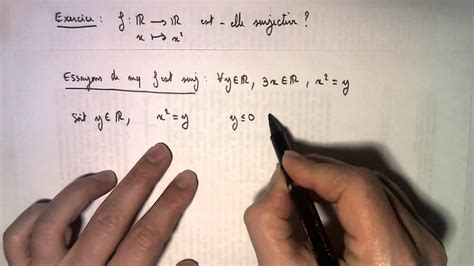 Exercice : f : ℝ → ℝ est-elle surjective ?
x ↦ x²
Essayons de mq f est surj : ∀y∈ℝ, ∃x∈ℝ, x² = y
Soit y∈ℝ, x² = y y ≤ 0